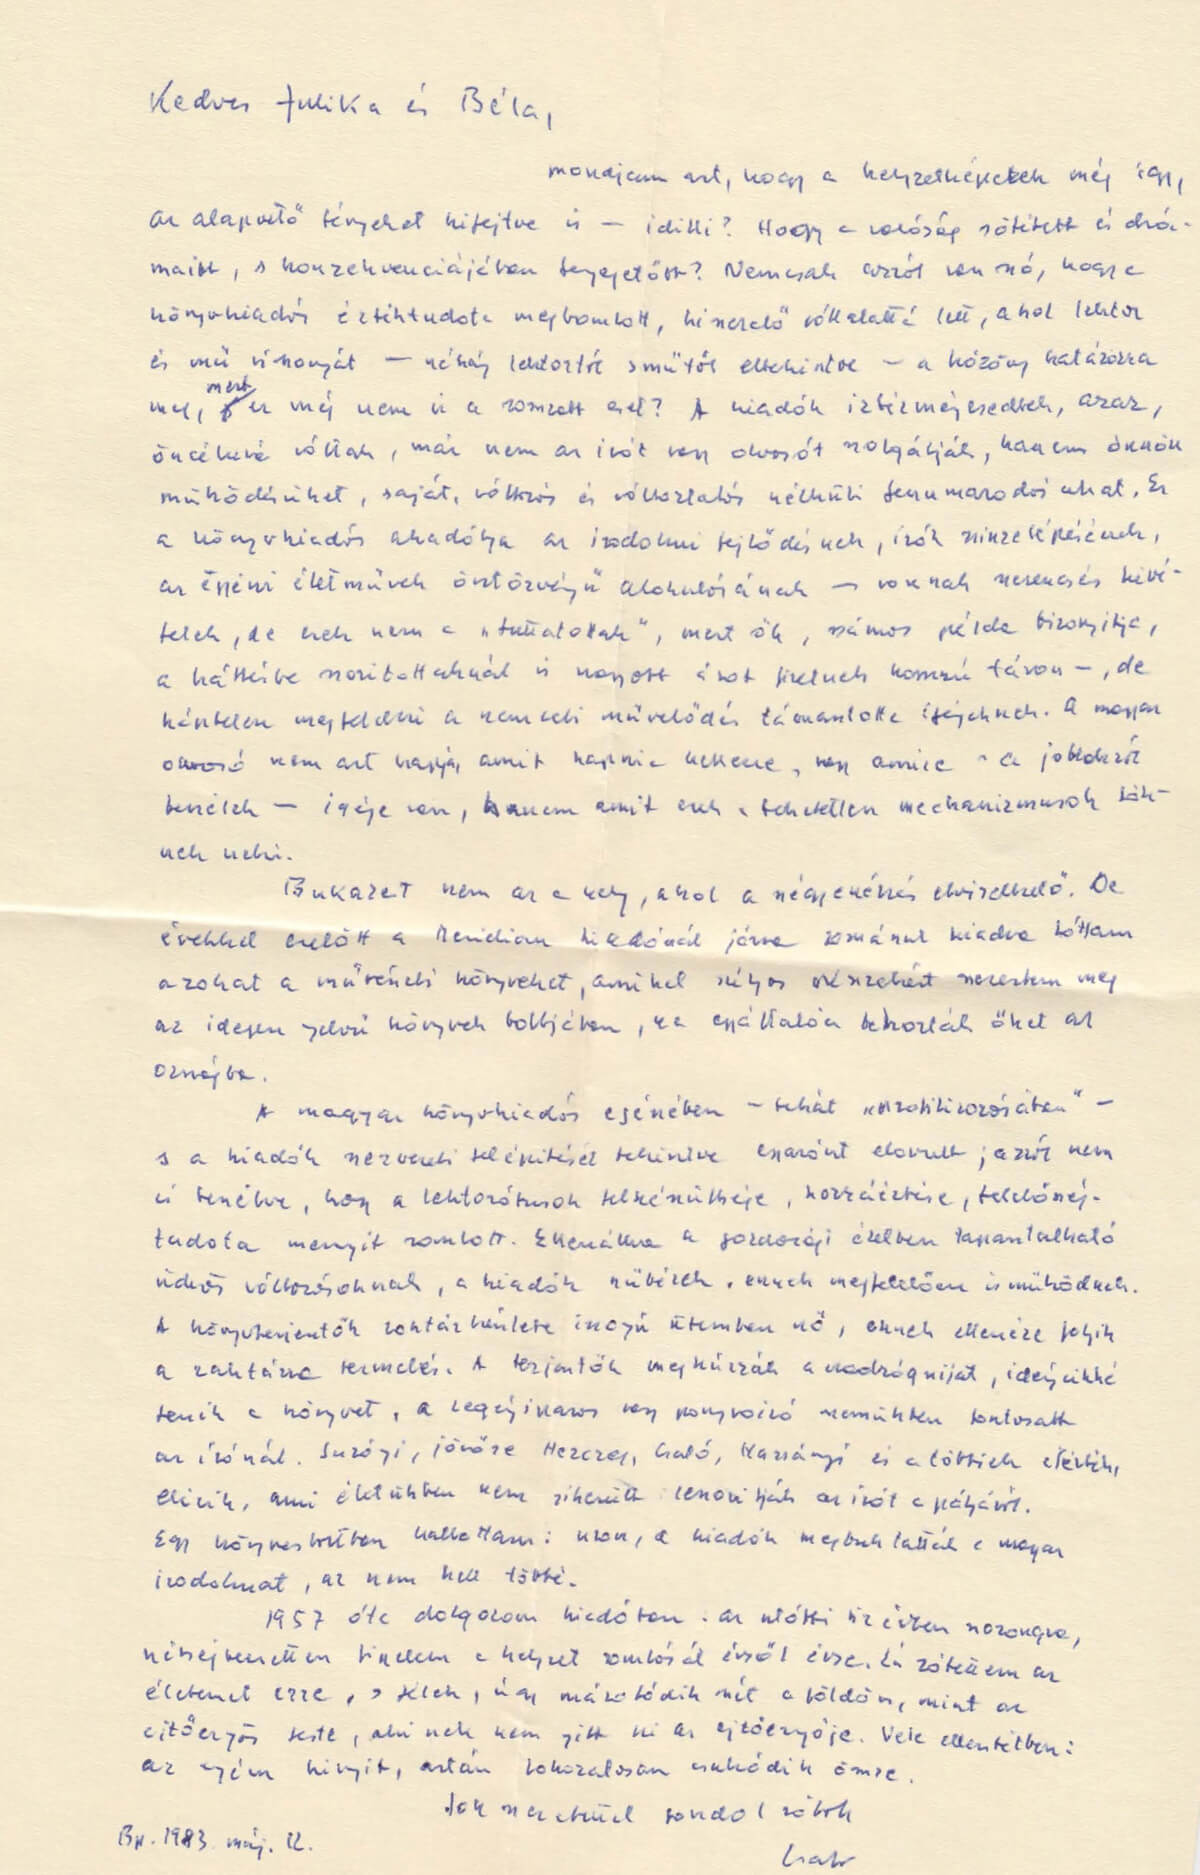 Kedves Julika és Béla,
mondjam azt, hogy a helyzetképetek még így,
az alapvető tényeket kifejtve is – idilli? Hogy a valóság sötétebb és drá-
maibb, s konzekvenciájában fenyegetőbb? Nemcsak arról van szó, hogy a
könyvkiadás értéktudata megbomlott, kiszerelő vállalattá lett, ahol lektor
és mű viszonyát – néhány lektortól s műtől eltekintve – a közöny határozza
meg, mert ez még nem is a rosszabb eset? A kiadók intézményesedtek, azaz,
öncélúvá váltak, már nem az írót vagy olvasót szolgálják, hanem önnön
működésüket, saját, változás és változtatás nélküli fennmaradásukat. Ez
a könyvkiadás akadálya az irodalmi fejlődésnek, írók színrelépésének,
az egyéni életművek öntörvényű alakulásának – vannak szerencsés kivé-
telek, de ezek nem a „futtatottak", mert ők, számos példa bizonyítja,
a háttérbe szorítottaknál is nagyobb árat fizetnek hosszú távon –, de
képtelen megfelelni a nemzeti művelődés támasztotta igényeknek. A magyar
olvasó nem azt kapja, amit kapnia kellene, vagy amire – a jobbakról
beszélek – igénye van, hanem amit ezek a tehetetlen mechanizmusok lök-
nek neki.
Bukarest nem az a hely, ahol a négyenkézés elviselhető. De
évekkel ezelőtt a Meridian kiadónál járva románul kiadva láttam
azokat a művészeti könyveket, amiket súlyos pénzekért szereztem meg
az idegen nyelvű könyvek boltjában, ha egyáltalán behozták őket az
országba.
A magyar könyvkiadás egészében – tehát „profilírozásában" –
s a kiadók szervezeti felépítését tekintve egyaránt elavult; arról nem
is beszélve, hogy a lektorátusok felkészültsége, hozzáértése, felelősség-
tudata mennyit romlott. Ellenállva a gazdasági életben tapasztalható
üdvös változásoknak, a kiadók hűbérek, ennek megfelelően is működnek.
A könyvterjesztők raktárkészlete iszonyú ütemben nő, ennek ellenére folyik
a raktárra termelés. A terjesztők meghúzzák a nadrágszíjat, idénycikké
teszik a könyvet, a legcsinos vagy ponyvaíró szemükben fontosabb
az írónál. Surányi, jövőre Herczeg, Csathó, Harsányi és a többiek elérték,
elérik, ami életükben nem sikerült: leszorítják az írót a pályáról.
Egy könyvesboltban hallottam: uram, a kiadók megbuktatták a magyar
irodalmat, az nem kell többé.
1957 óta dolgozom kiadóban. Az utóbbi tíz évben szorongva,
kétségbeesetten figyelem a helyzet romlását évről évre. Én rátettem az
életemet erre, s félek, úgy mázolódik szét a földön, mint az
ejtőernyős teste, akinek nem nyílt ki az ejtőernyője. Vele ellentétben:
az enyém kinyílt, aztán fokozatosan csukódik össze.
Sok szeretettel gondol rátok
Bp. 1983. máj. 12.